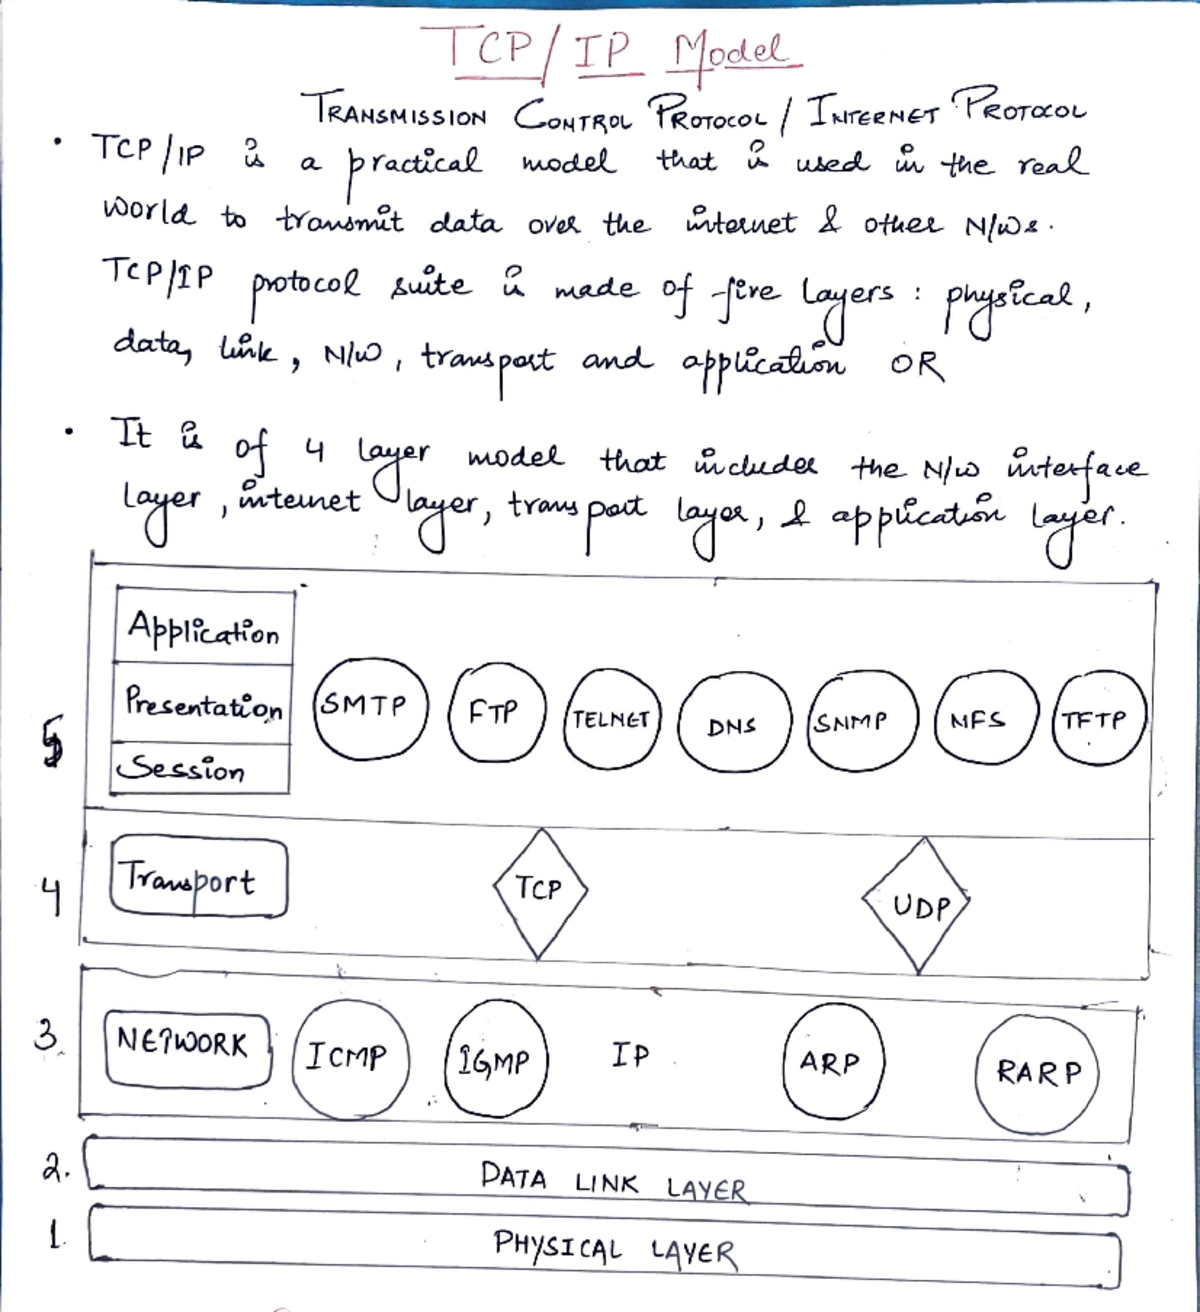 TCP/IP Model
TRANSMISSION CONTROL PROTOCOL / INTERNET PROTOCOL
• TCP/IP is a practical model that is used in the real
world to transmit data over the internet & other N/Ws.
TCP/IP protocol suite is made of five layers : physical,
data, link, N/W, transport and application OR
• It is of 4 layer model that includes the N/W interface
layer, internet layer, transport layer, & application layer.
Application
Presentation
Session
5
SMTP FTP TELNET DNS SNMP NFS TFTP
4 Transport TCP UDP
3. NETWORK ICMP IGMP IP ARP RARP
2. DATA LINK LAYER
1. PHYSICAL LAYER